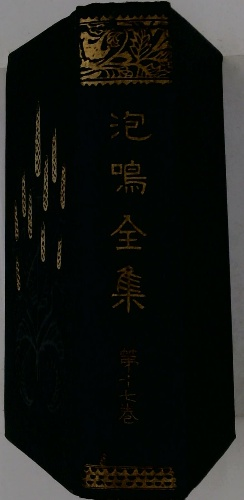 泡鳴全集
第十七卷